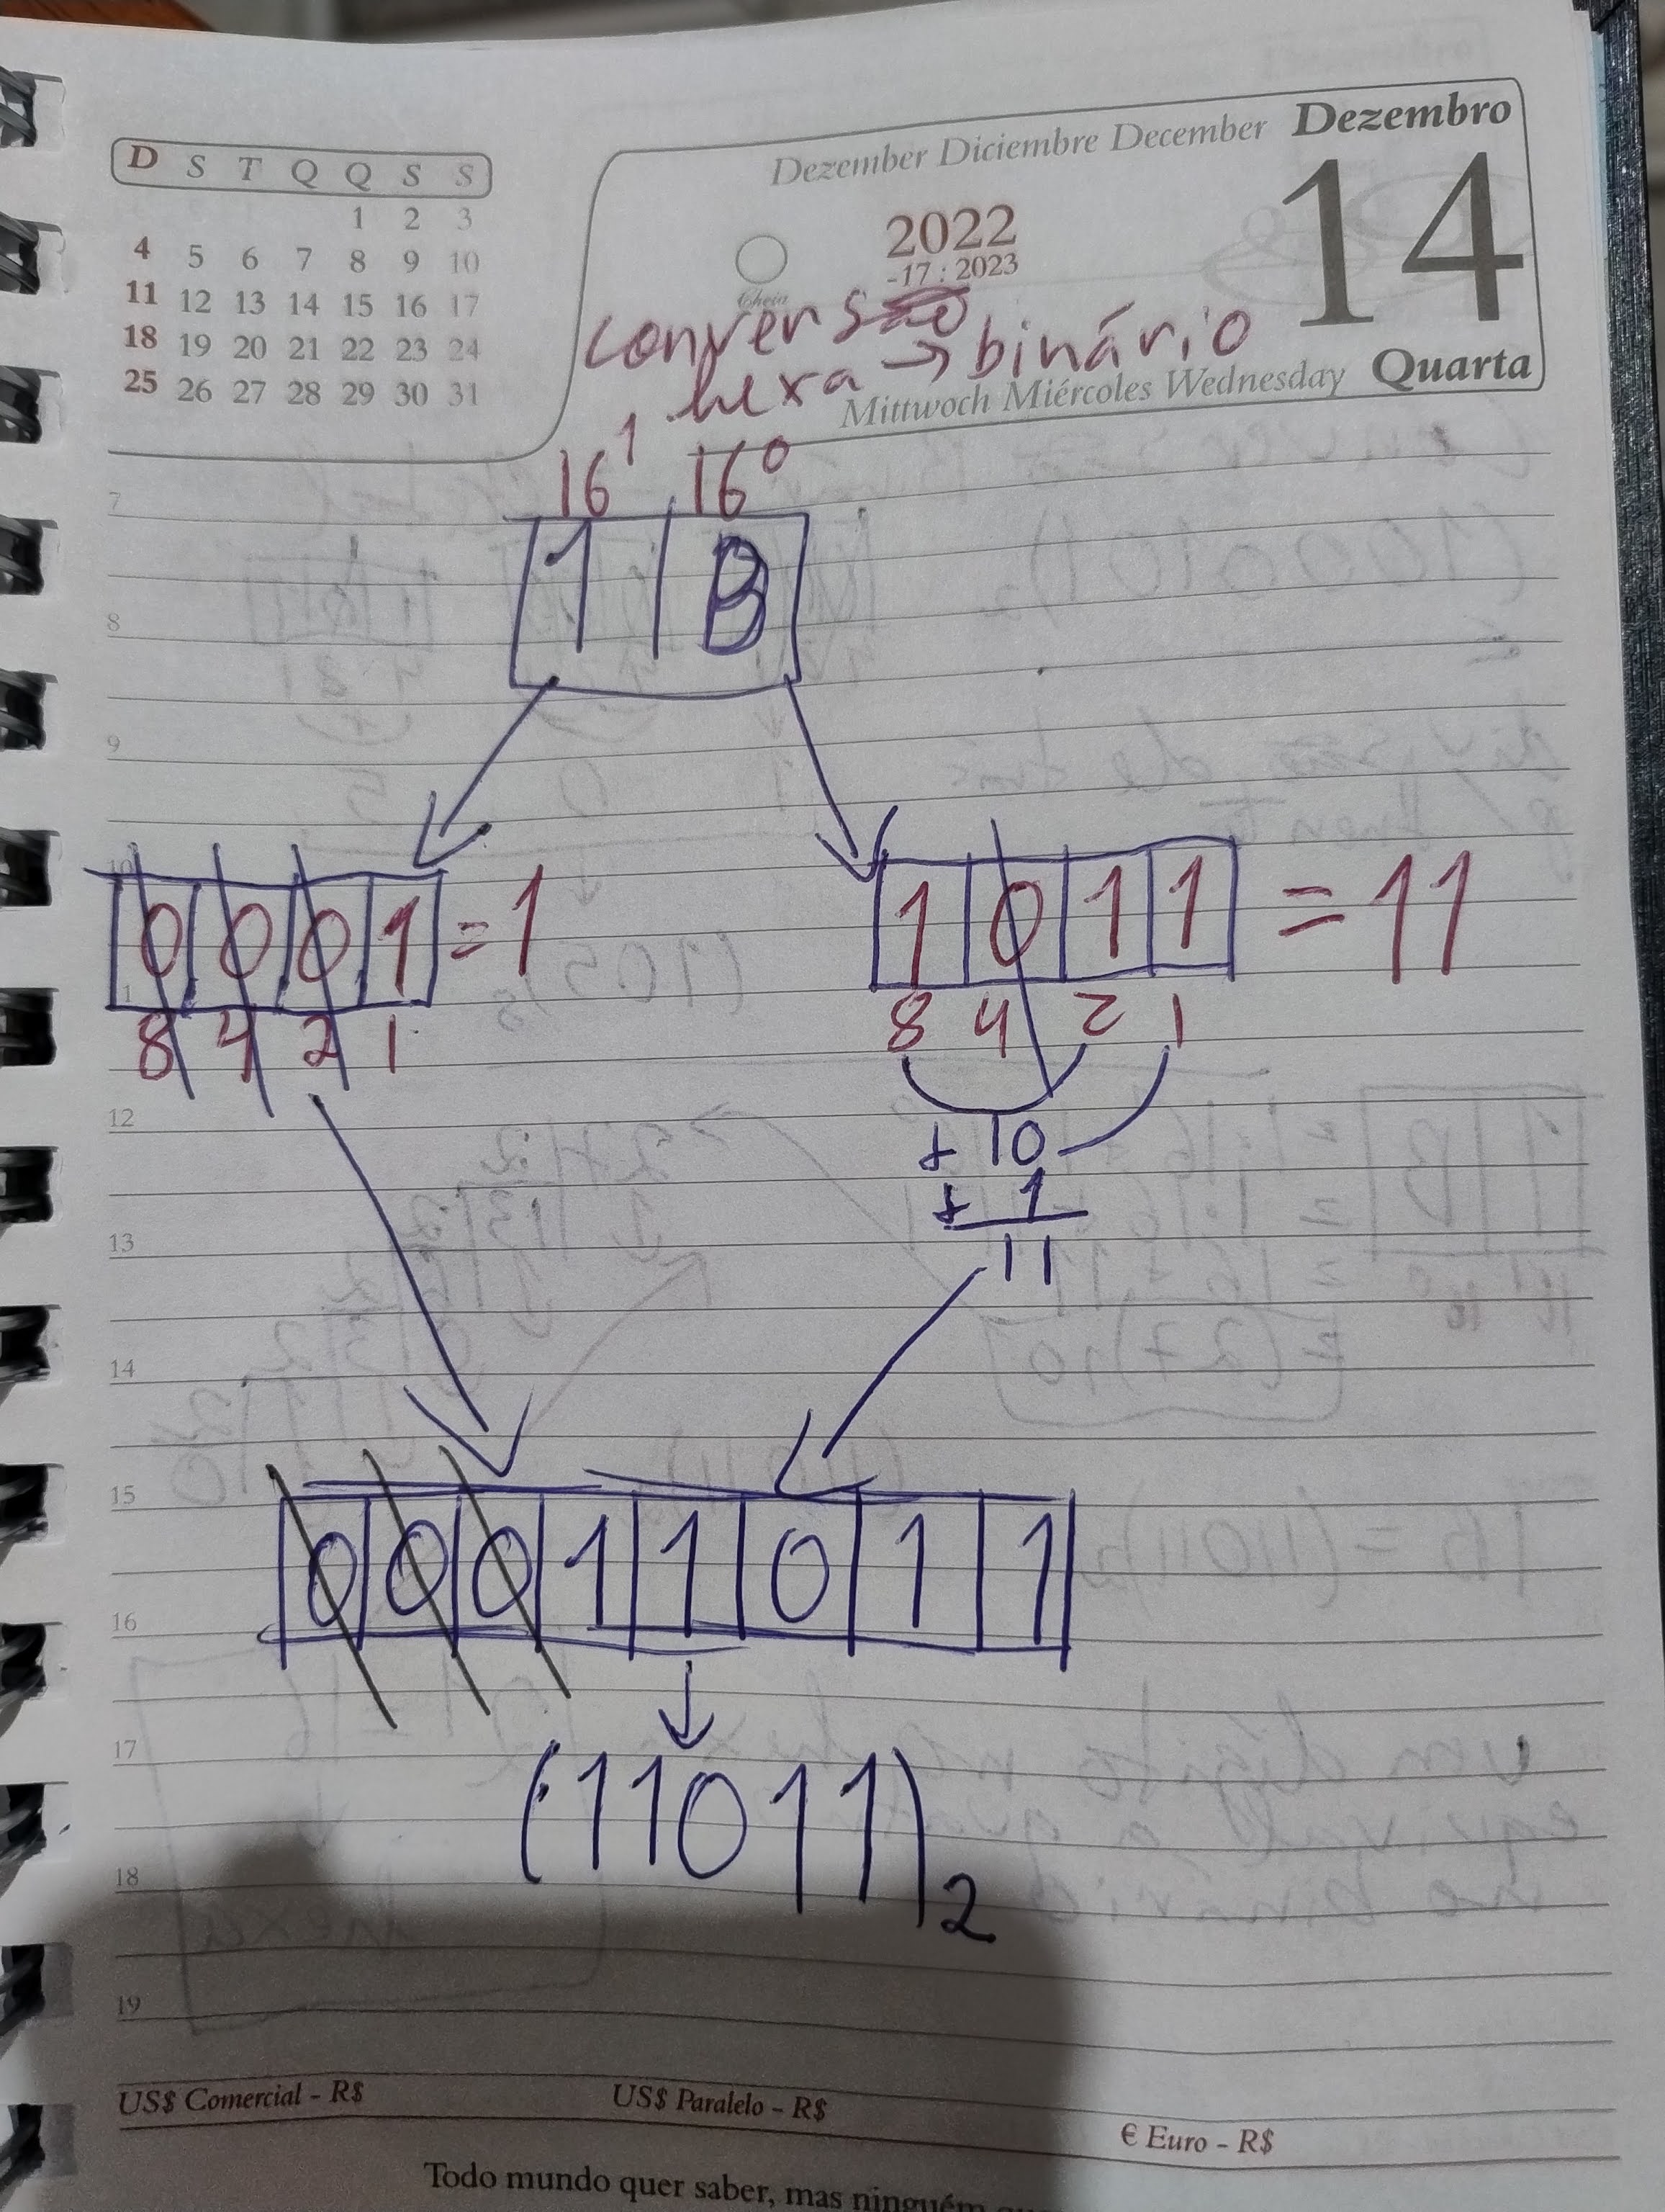 D S T Q Q S S
1 2 3
4 5 6 7 8 9 10
11 12 13 14 15 16 17
18 19 20 21 22 23 24
25 26 27 28 29 30 31
Dezember Diciembre December Dezembro
14
2022
-17 : 2023
Cheia
conversão
hexa → binário
Mittwoch Miércoles Wednesday Quarta
16¹ 16⁰
7
1 B
8
9
10
0 0 0 1 = 1
1 0 1 1 = 11
8 4 2 1
8 4 2 1
12
+ 10
+ 1
13
11
14
15
0 0 0 1 1 0 1 1
16
17
(11011)₂
18
19
US$ Comercial - R$ US$ Paralelo - R$ € Euro - R$
Todo mundo quer saber, mas ninguém